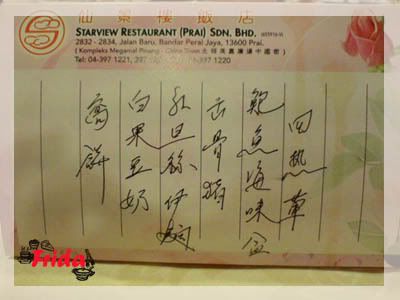 仙景樓飯店
STARVIEW RESTAURANT (PRAI) SDN. BHD.
2832 - 2834, Jalan Baru, Bandar Perai Jaya, 13600 Prai.
( Kompleks Megamal Pinang - China Town
Tel: 04-397 1221, 1220
四熱葷
鮑魚海味盆
去骨
旦絲伊麵
白果豆奶
窩餅
Frida